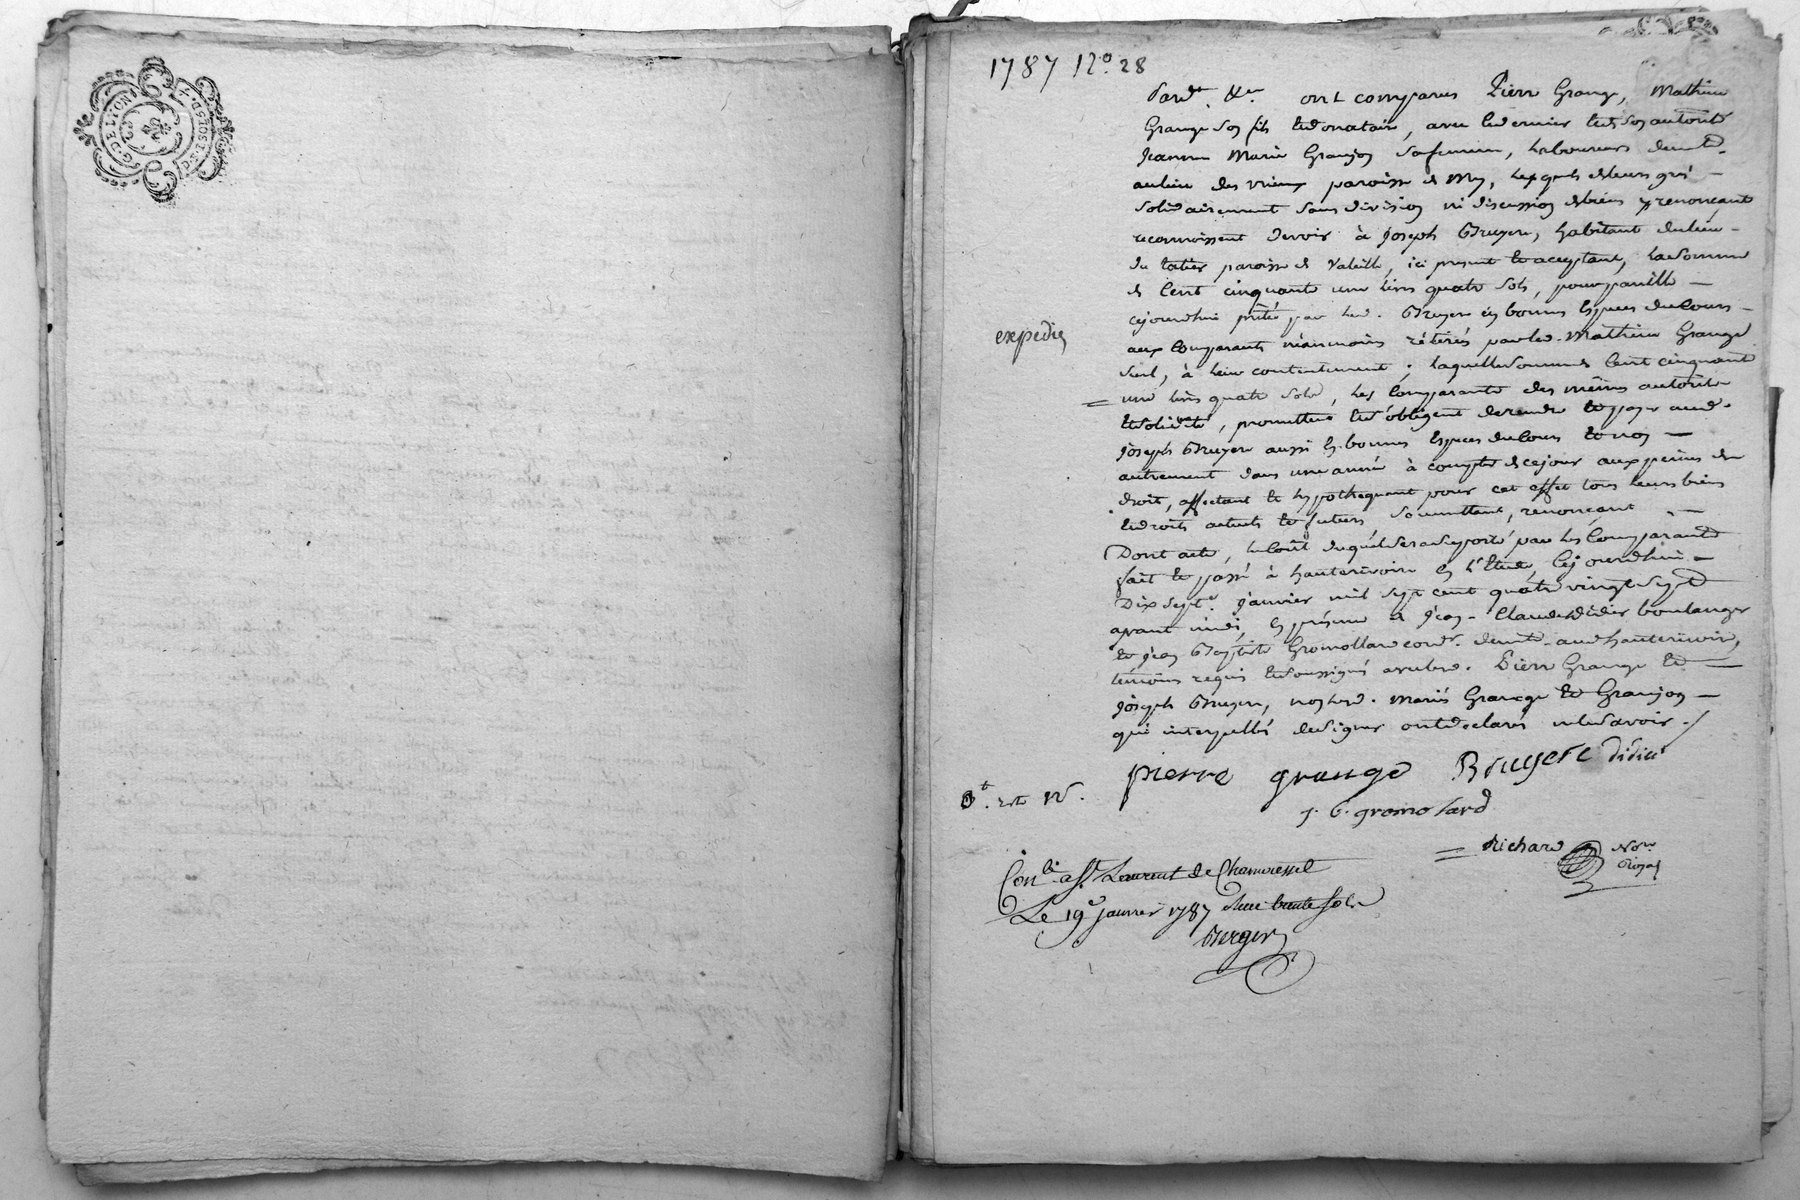 G. DE LYON 4. D. POST. 2. D.
1787 N.o 28
Pard.t &.ra ont comparus Pierre Grange, Mathieu
Grange son fils & donataire, avec led. dernier & de son autorité
Jeanne Marie Granjon sa femme, laboureurs demt.
au lieu des vrieux paroisse de , lesquels de leurs gré
solidairement sans division ni discussion de biens y renonçant
reconnoissent devoir à Joseph Bruyere, habitant du lieu
du paroisse de Valeille, ici present & aceptant, la somme
de Cent cinquante une livres quatre sols, pour pareille
cejourdhui prêtée par led. Bruyere en bonnes Especes du Cours
aux Comparants néanmoins rétirés par led. Mathieu Grange
seul, à leur contentement ; laquelle somme de Cent cinquante
une livres quatre sols, les Comparants des mêmes autorité
& solidité, promettent & s'obligent de rendre & payer aud.
Joseph Bruyere aussi en bonnes Espèces du Cours & non
autrement dans une année à compter de cejour aux peines de
droit, affectant & hypothequant pour cet effet tous leurs biens
& droits actuels & futurs, soumettant, renonçant
Dont acte, le Coût duquel sera suporté par les Comparants
fait & passé à hauterivoire en l'Etude, Cejourdhui
Dix sept.e Janvier mil sept cent quatre vingt sept
avant midi, en présence de Jean-Claude Didier boulanger
& Jean Baptiste Gromollard cord.r demt. aud. hauterivoire,
témoins requis & soussignés avec led. Pierre Grange &
Joseph Bruyere, non lesd. mariés Grange & Granjon
qui interpellés de signer ont déclarés ne le savoir.
expedié
pierre grange Bruyere didier
J. B. gromolard
Richard No.re Royal
Con.lé a St. Laurent de Chamousset
Le 19.e janvier 1787 Reçu trente sols
Berger